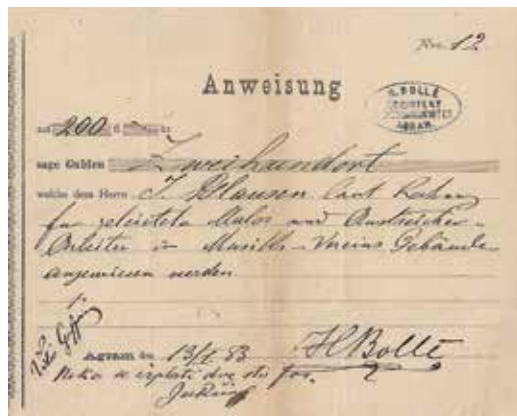 Nro. 12
Anweisung
H. BOLLÉ
ARCHITEKT
AGRAM.
auf 200 fl kr
sage Gulden Zweihundert
welche dem Herrn J. Clausen laut
für geleistete Maler und Anstreicher-
Arbeiten in Musik-Vereins Gebäude
angewiesen werden
Agram den 13/1 83 HBollé
Neka se isplati dve sto for.